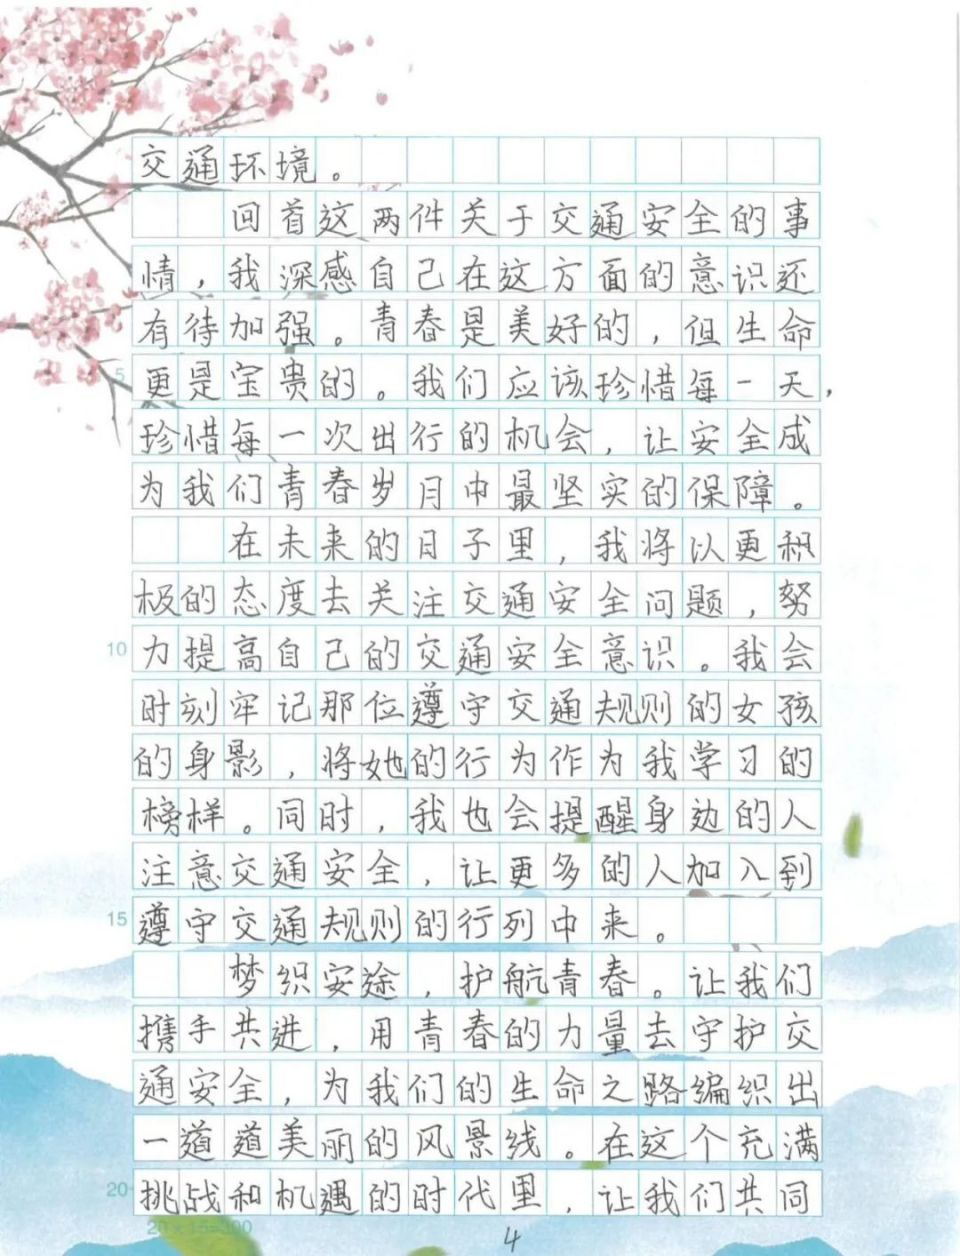 交通环境。
回首这两件关于交通安全的事
情，我深感自己在这方面的意识还
有待加强。青春是美好的，但生命
5 更是宝贵的。我们应该珍惜每一天，
珍惜每一次出行的机会，让安全成
为我们青春岁月中最坚实的保障。
在未来的日子里，我将以更积
极的态度去关注交通安全问题，努
10 力提高自己的交通安全意识。我会
时刻牢记那位遵守交通规则的女孩
的身影，将她的行为作为我学习的
榜样。同时，我也会提醒身边的人
注意交通安全，让更多的人加入到
15 遵守交通规则的行列中来。
梦织安途，护航青春。让我们
携手共进，用青春的力量去守护交
通安全，为我们的生命之路编织出
一道道美丽的风景线。在这个充满
20 挑战和机遇的时代里，让我们共同
20×15=300
4